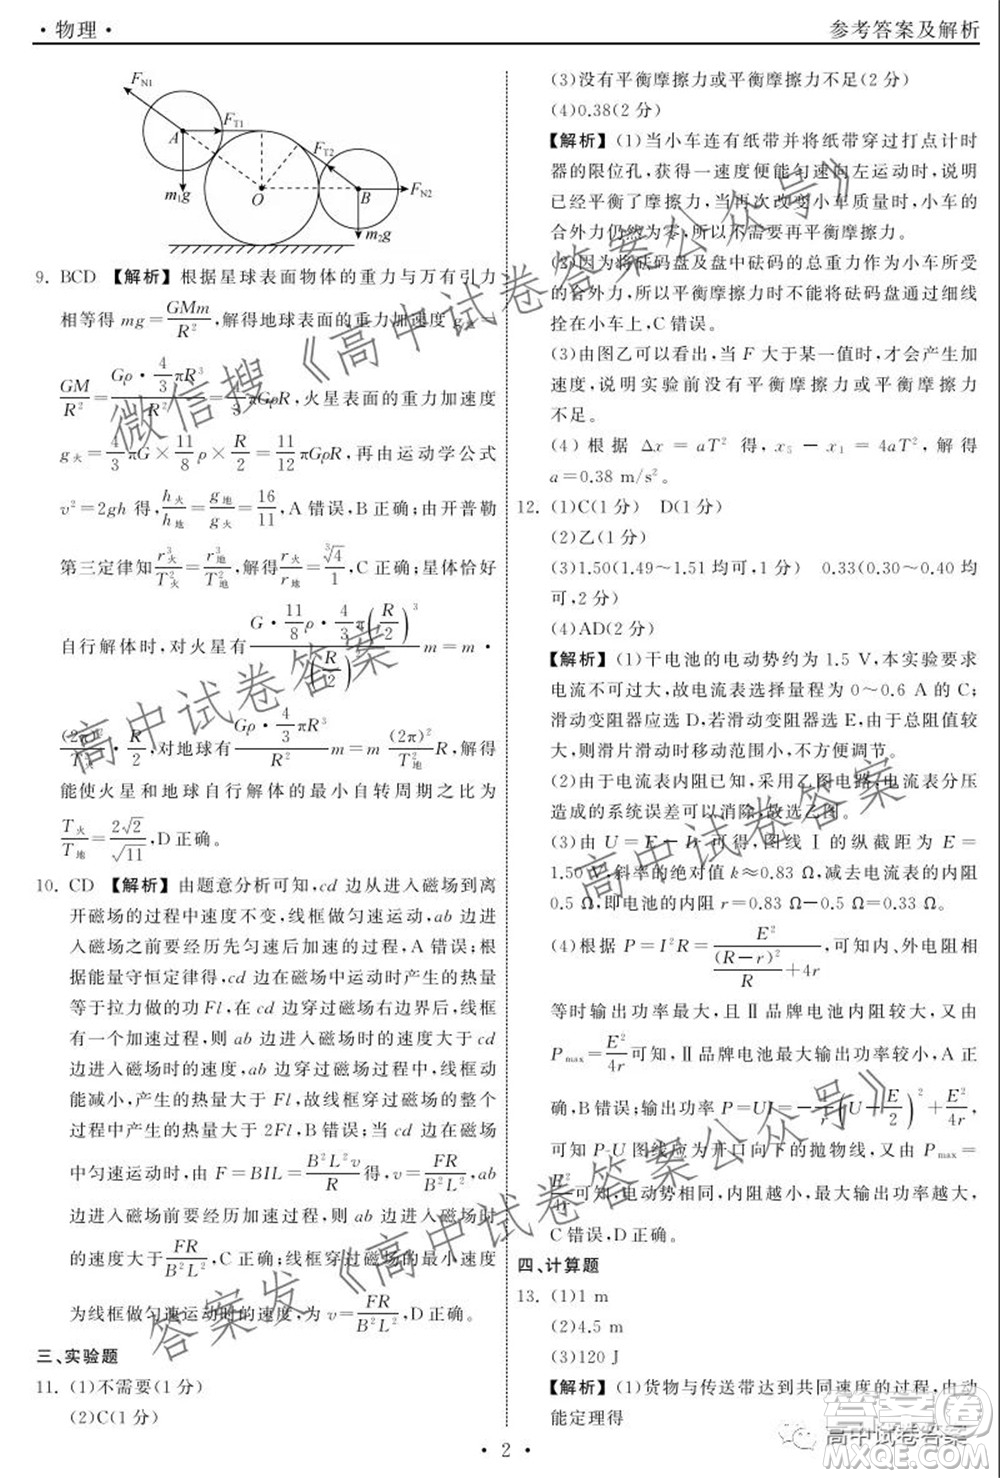 ·物理·
参考答案及解析
F_N1
A
F_T1
F_T2
m₁g
O
B
F_N2
m₂g
9. BCD 【解析】根据星球表面物体的重力与万有引力
相等得 mg=GMm/R²,解得地球表面的重力加速度 g地=
GM/R²=(Gρ·4/3 πR³)/R²=4/3 πGρR,火星表面的重力加速度
g火=4/3 πG×11/8 ρ×R/2=11/12 πGρR,再由运动学公式
v²=2gh 得,h火/h地=g地/g火=16/11,A 错误,B 正确;由开普勒
第三定律知 r³火/T²火=r³地/T²地,解得 r火/r地=∛4/1,C 正确;星体恰好
自行解体时,对火星有 (G·11/8 ρ·4/3 π(R/2)³)/(R/2)² m=m·
(2π)²/T²火·R/2,对地球有 (Gρ·4/3 πR³)/R² m=m (2π)²/T²地 R,解得
能使火星和地球自行解体的最小自转周期之比为
T火/T地=2√2/√11,D 正确。
10. CD 【解析】由题意分析可知,cd 边从进入磁场到离
开磁场的过程中速度不变,线框做匀速运动,ab 边进
入磁场之前要经历先匀速后加速的过程,A 错误;根
据能量守恒定律得,cd 边在磁场中运动时产生的热量
等于拉力做的功 Fl,在 cd 边穿过磁场右边界后,线框
有一个加速过程,则 ab 边进入磁场时的速度大于 cd
边进入磁场时的速度,ab 边在磁场中运动过程,线框动
能减小,产生的热量大于 Fl,故线框穿过磁场的整个
过程中产生的热量大于 2Fl,B 错误;cd 边在磁场
中匀速运动时,由 F=BIL=B²L²v/R 得,v=FR/B²L²,ab
边进入磁场前要经历加速过程,故 ab 边进入磁场时
的速度大于 FR/B²L²,C 正确;线框穿过磁场的最小速度
为线框做匀速运动时的速度,为 v=FR/B²L²,D 正确。
三、实验题
11. (1)不需要(1 分)
(2)C(1 分)
(3)没有平衡摩擦力或平衡摩擦力不足(2 分)
(4)0.38(2 分)
【解析】(1)当小车连有纸带并将纸带穿过打点计时
器的限位孔,获得一速度便能匀速向左运动时,说明
已经平衡了摩擦力,当再次改变小车质量时,小车的
合外力仍然为零,所以不需要再平衡摩擦力。
(2)因为是将砝码盘及盘中砝码的总重力作为小车所受
的合外力,所以平衡摩擦力时不能将砝码盘通过细线
拴在小车上,C 错误。
(3)由图乙可以看出,当 F 大于某一值时,才会产生加
速度,说明实验前没有平衡摩擦力或平衡摩擦力
不足。
(4)根据 Δx=aT² 得,x₅-x₁=4aT²,解得
a=0.38 m/s²。
12. (1)C(1 分) D(1 分)
(2)乙(1 分)
(3)1.50(1.49~1.51 均可,1 分) 0.33(0.30~0.40 均
可,2 分)
(4)AD(2 分)
【解析】(1)干电池的电动势约为 1.5 V,本实验要求
电流不可过大,故电流表选择量程为 0~0.6 A 的 C;
滑动变阻器应选 D,若滑动变阻器选 E,由于总阻值较
大,则滑片滑动时移动范围小,不方便调节。
(2)由于电流表内阻已知,采用乙图电路,电流表分压
造成的系统误差可以消除,故选乙图。
(3)由 U=E-Ir 可得,图线Ⅰ的纵截距为 E=
1.50 V,斜率的绝对值为 k≈0.83 Ω,减去电流表内阻
0.5 Ω,即电池的内阻 r=0.83 Ω-0.5 Ω=0.33 Ω。
(4)根据 P=I²R=E²/((R-r)²/R+4r),可知内、外电阻相
等时输出功率最大,且Ⅱ品牌电池内阻较大,又由
Pmax=E²/4r 可知,Ⅱ品牌电池最大输出功率较小,A 正
确,B 错误;输出功率 P=UI=-1/r(U-E/2)²+E²/4r,
可知 P-U 图线应为开口向下的抛物线,又由 Pmax=
E²/4r 可知,电动势相同,内阻越小,最大输出功率越大,
C 错误,D 正确。
四、计算题
13. (1)1 m
(2)4.5 m
(3)120 J
【解析】(1)货物与传送带达到共同速度的过程,由动
能定理得
·2·
微信搜《高中试卷答案公众号》
高中试卷答案
答案发《高中试卷答案公众号》
高中试卷答案
高中试卷答案
答案圈
MXQE.COM